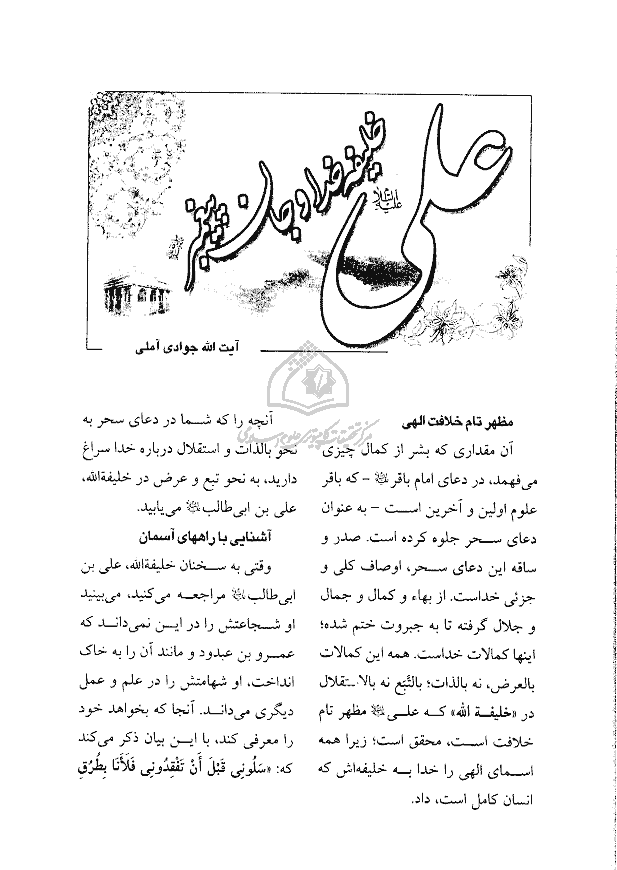 علی علیه‌السلام
خلیفه خدا و جان پیغمبر
آیت الله جوادی آملی
مظهر تام خلافت الهی
آن مقداری که بشر از کمال چیزی
می‌فهمد، در دعای امام باقر﷣ - که باقر
علوم اولین و آخرین است - به عنوان
دعای سحر جلوه کرده است. صدر و
ساقه این دعای سحر، اوصاف کلی و
جزئی خداست. از بهاء و کمال و جمال
و جلال گرفته تا به جبروت ختم شده؛
اینها کمالات خداست. همه این کمالات
بالعرض، نه بالذات؛ بالتَّبَع نه بالاستقلال
در «خلیفة الله» که علی﷣ مظهر تام
خلافت است، محقق است؛ زیرا همه
اسمای الهی را خدا به خلیفه‌اش که
انسان کامل است، داد.
آنچه را که شما در دعای سحر به
نحو بالذات و استقلال درباره خدا سراغ
دارید، به نحو تبع و عرض در خلیفةالله،
علی بن ابی‌طالب﷣ می‌یابید.
آشنایی با راههای آسمان
وقتی به سخنان خلیفةالله، علی بن
ابی‌طالب﷣ مراجعه می‌کنید، می‌بینید
او شجاعتش را در این نمی‌داند که
عمرو بن عبدود و مانند آن را به خاک
انداخت، او شهامتش را در علم و عمل
دیگری می‌داند. آنجا که بخواهد خود
را معرفی کند، با این بیان ذکر می‌کند
که: «سَلُونِی قَبْلَ أَنْ تَفْقِدُونِی فَلَأَنَا بِطُرُقِ